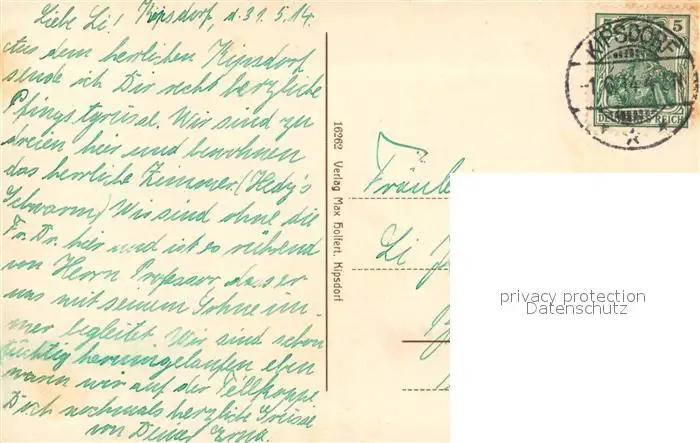 Liebe Li! Kipsdorf, d. 31.5.14.
Aus dem herrlichen Kipsdorf
sende ich Dir recht herzliche
Pfingstgrüsse. Wir sind zu
dreien hier und bewohnen
das herrliche Zimmer. (Hedy's
Schwarm) Wir sind ohne die
Fr. Dr. hier und ist es rührend
von Herrn Professor, dass er
uns mit seinem Sohne im-
mer begleitet. Wir sind schon
tüchtig herumgelaufen eben
waren wir auf der Tellkoppe
Doch nochmals herzliche Grüsse
von Deiner Erna.
16262 Verlag Max Holfert, Kipsdorf
5
KIPSDORF
DEUTSCHES REICH
Fräulei
Li
privacy protection
Datenschutz